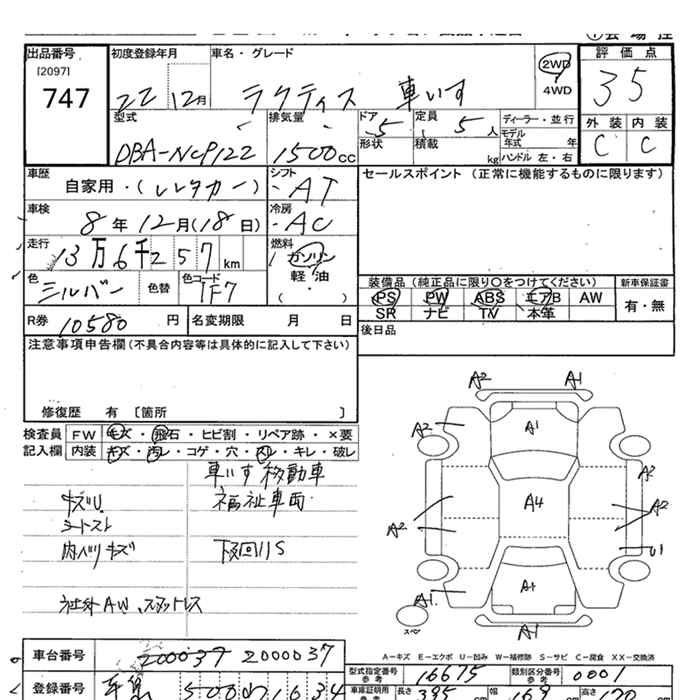 出品番号 初度登録年月 車名・グレード 評価点
[2097]
747
22 12月 ラクティス 車いす 2WD 4WD 35
型式 排気量 ドア 定員 ディーラー・並行 外装 内装
DBA-NCP122 1500cc 5 5人 モデル年式 年 C C
形状 積載 kg ハンドル 左・右
車歴 シフト セールスポイント (正常に機能するものに限ります)
自家用・(レンタカー) AT
車検 冷房
8年12月(18日) AC
走行 燃料
13万6千257km ガソリン
軽・油
( ・ )
色 色替 色コード 装備品 (純正品に限り○をつけてください) 新車保証書
シルバー 1F7 PS PW ABS エアB AW 有・無
SR ナビ TV 本革
R券 10580 円 名変期限 月 日 後日品
注意事項申告欄(不具合内容等は具体的に記入して下さい)
修復歴 有 [箇所 ]
検査員 FW キズ・飛石・ヒビ割・リペア跡・×要
記入欄 内装 キズ・汚レ・コゲ・穴・スレ・キレ・破レ
車いす移動車
キズU 福祉車両
シートスレ
内ハリキズ 下回りS
社外AW、スタットレス
A2 A1
A2 A1
A2
A4 A2
A2
U1
A1 A1
スペア A1
A-キズ E-エクボ U-凹み W-補修跡 S-サビ C-腐食 XX-交換済
車台番号 2000037 型式指定番号 参考 16675 類別区分番号 参考 0001
登録番号 車庫証明用 参考 長さ 395 cm 幅 169 高さ